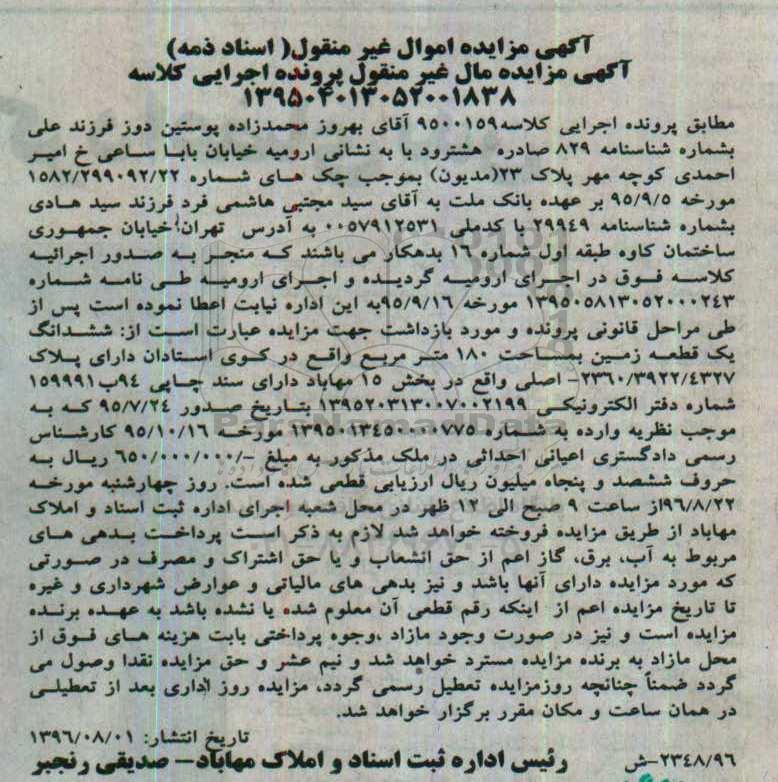 آگهی مزایده اموال غیر منقول( اسناد ذمه)
آگهی مزایده مال غیر منقول پرونده اجرایی کلاسه
۱۳۹۵۰۴۰۱۳۰۵۲۰۰۱۸۳۸
مطابق پرونده اجرایی کلاسه۹۵۰۰۱۵۹ آقای بهروز محمدزاده پوستین دوز فرزند علی
بشماره شناسنامه ۸۲۹ صادره هشترود با به نشانی ارومیه خیابان بابا ساعی خ امیر
احمدی کوچه مهر پلاک ۲۳(مدیون) بموجب چک های شماره ۱۵۸۲/۲۹۹۰۹۲/۲۲
مورخه ۹۵/۹/۵ بر عهده بانک ملت به آقای سید مجتبی هاشمی فرد فرزند سید هادی
بشماره شناسنامه ۲۹۹۴۹ با کدملی ۰۰۵۷۹۱۲۵۳۱ به آدرس تهران خیابان جمهوری
ساختمان کاوه طبقه اول شماره ۱۶ بدهکار می باشند که منجر به صدور اجرائیه
کلاسه فوق در اجرای ارومیه گردیده و اجرای ارومیه طی نامه شماره
۱۳۹۵۰۵۸۱۳۰۵۲۰۰۰۲۴۳ مورخه ۹۵/۹/۱۶به این اداره نیابت اعطا نموده است پس از
طی مراحل قانونی پرونده و مورد بازداشت جهت مزایده عبارت است از: ششدانگ
یک قطعه زمین بمساحت ۱۸۰ متر مربع واقع در کوی استادان دارای پلاک
۲۳۶۰/۳۹۲۲/۴۳۲۷- اصلی واقع در بخش ۱۵ مهاباد دارای سند چاپی ۹۴ب۱۵۹۹۹۱
شماره دفتر الکترونیکی ۱۳۹۵۲۰۳۱۳۰۰۷۰۰۲۱۹۹ بتاریخ صدور ۹۵/۷/۲۴ که به
موجب نظریه وارده به شماره ۱۳۹۵۰۱۳۴۵۰۰۱۰۰۷۷۵ مورخه ۹۵/۱۰/۱۶ کارشناس
رسمی دادگستری اعیانی احداثی در ملک مذکور به مبلغ -/۶۵۰/۰۰۰/۰۰۰ ریال به
حروف ششصد و پنجاه میلیون ریال ارزیابی قطعی شده است. روز چهارشنبه مورخه
۹۶/۸/۲۲از ساعت ۹ صبح الی ۱۲ ظهر در محل شعبه اجرای اداره ثبت اسناد و املاک
مهاباد از طریق مزایده فروخته خواهد شد لازم به ذکر است پرداخت بدهی های
مربوط به آب، برق، گاز اعم از حق انشعاب و یا حق اشتراک و مصرف در صورتی
که مورد مزایده دارای آنها باشد و نیز بدهی های مالیاتی و عوارض شهرداری و غیره
تا تاریخ مزایده اعم از اینکه رقم قطعی آن معلوم شده یا نشده باشد به عهده برنده
مزایده است و نیز در صورت وجود مازاد ،وجوه پرداختی بابت هزینه های فوق از
محل مازاد به برنده مزایده مسترد خواهد شد و نیم عشر و حق مزایده نقدا وصول می
گردد ضمناً چنانچه روزمزایده تعطیل رسمی گردد، مزایده روز اداری بعد از تعطیلی
در همان ساعت و مکان مقرر برگزار خواهد شد.
تاریخ انتشار: ۱۳۹۶/۰۸/۰۱
۲۳۴۸/۹۶-ش رئیس اداره ثبت اسناد و املاک مهاباد- صدیقی رنجبر